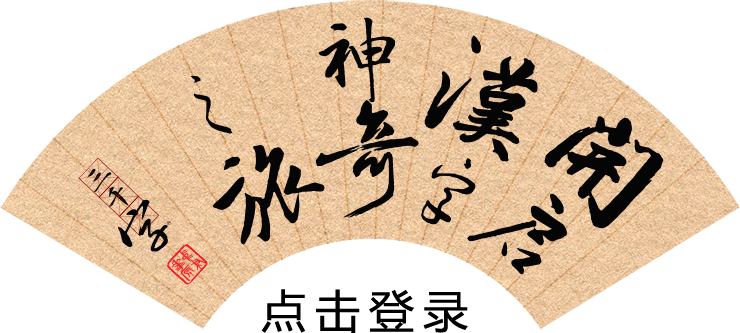 開启
漢字
神奇
之旅
三千字
点击登录